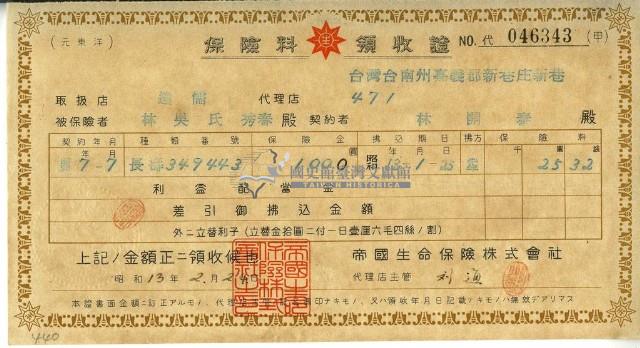 (元東洋)
保險料 領收證 NO.代 046343 (甲)
台灣台南州嘉義郡新巷庄新巷
取扱店 代理店 471
被保險者 林吳氏秀春 殿 契約者 林開泰 殿
契約年月 種類番號 保險金 拂込期日 拂方 保險料
年 月 圓 年 月 日 千 圓
7-7 長 349443 1000 昭 13-1-25 2532
利益配當金
差引御拂込金額
外ニ立替利子(立替金拾圓ニ付一日壹厘六毛四絲ノ割)
上記ノ金額正ニ領收候也 帝國生命保險株式會社
昭和13年2月2日 代理店主管
本證書面金額ニ訂正アルモノ、代理店主管ノ印ナキモノ、又ハ領收年月日記載ナキモノハ無效デアリマス
國史館臺灣文獻館
TAIWAN HISTORICA
440